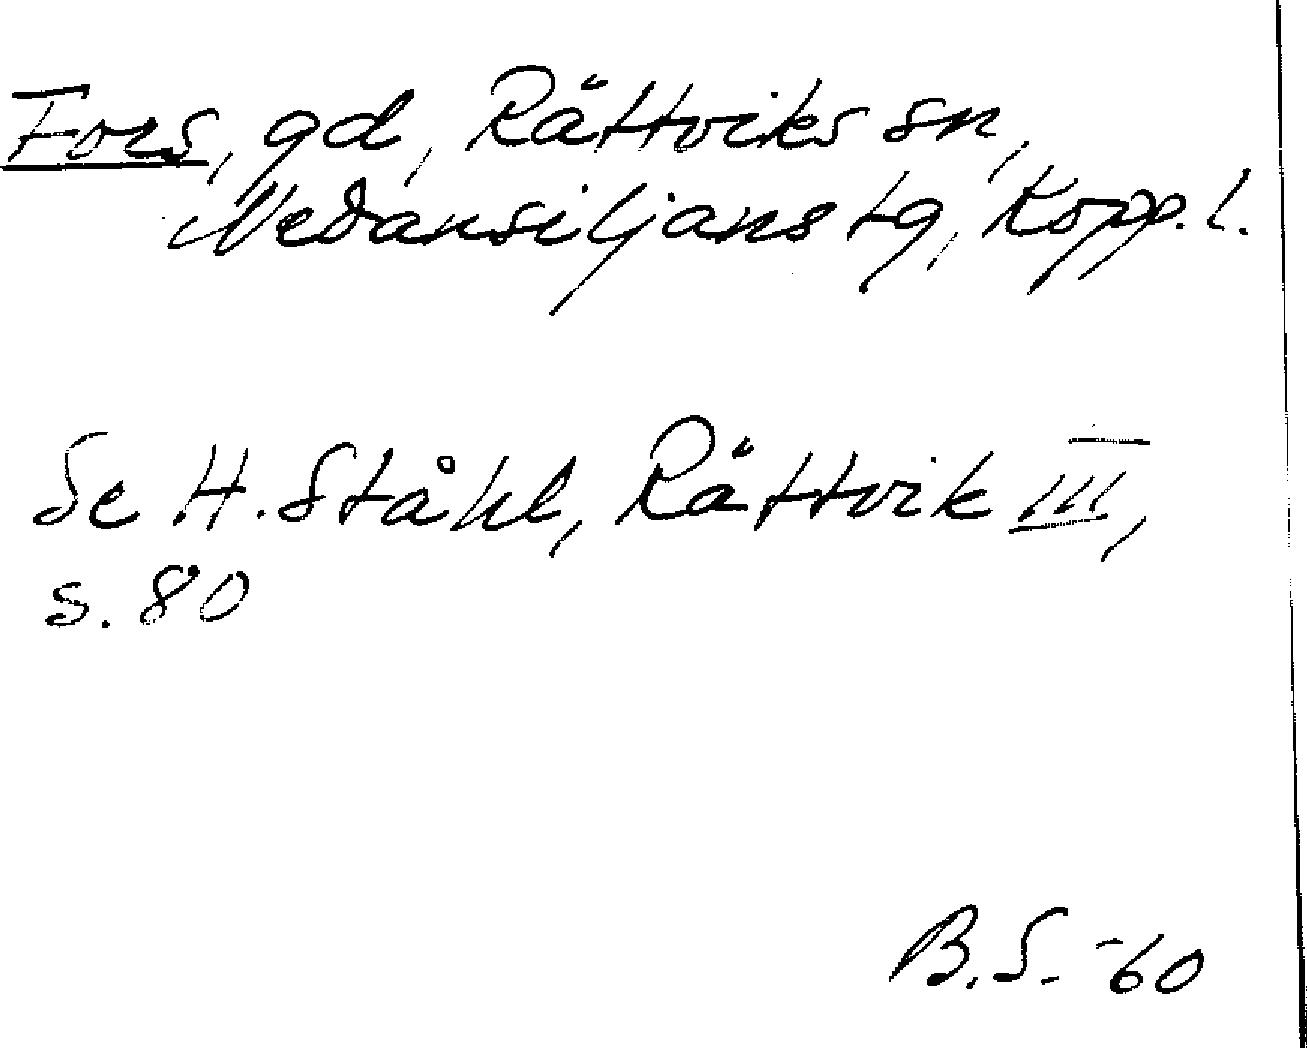 Fors, gd, Rättviks sn,
Nedansiljans tg, Kopp. l.
Se H. Ståhl, Rättvik III,
s. 80
B.S. -60